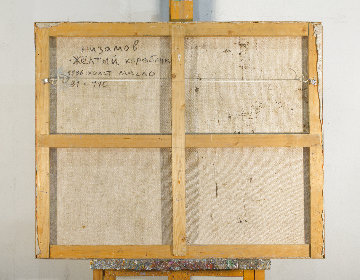 низамов
"желтый кораблик
1996 холст масло
91 × 110